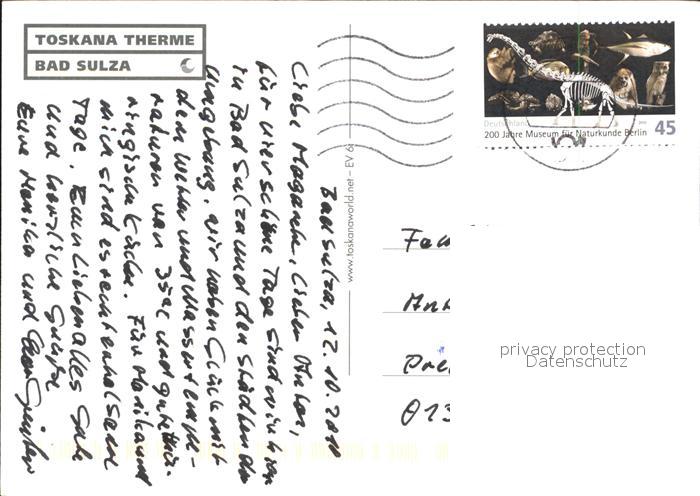 TOSKANA THERME
BAD SULZA
Bad Sulza, 12.10.2010
Liebe Margarete, lieber Anton,
für vier schöne Tage sind wir hier
in Bad Sulza und den Städten der
Umgebung. Wir haben Glück mit
dem Wetter und Wassertempe-
raturen von 35°C und guter thü-
ringische Küche. Für Monika und
mich sind es echt erholsame
Tage. Euch Lieben alles Gute
und herzliche Grüße
Eure Monika und
www.toskanaworld.net – EV 6
Deutschland
200 Jahre Museum für Naturkunde Berlin
45
Fam
An
Pre
013
privacy protection
Datenschutz